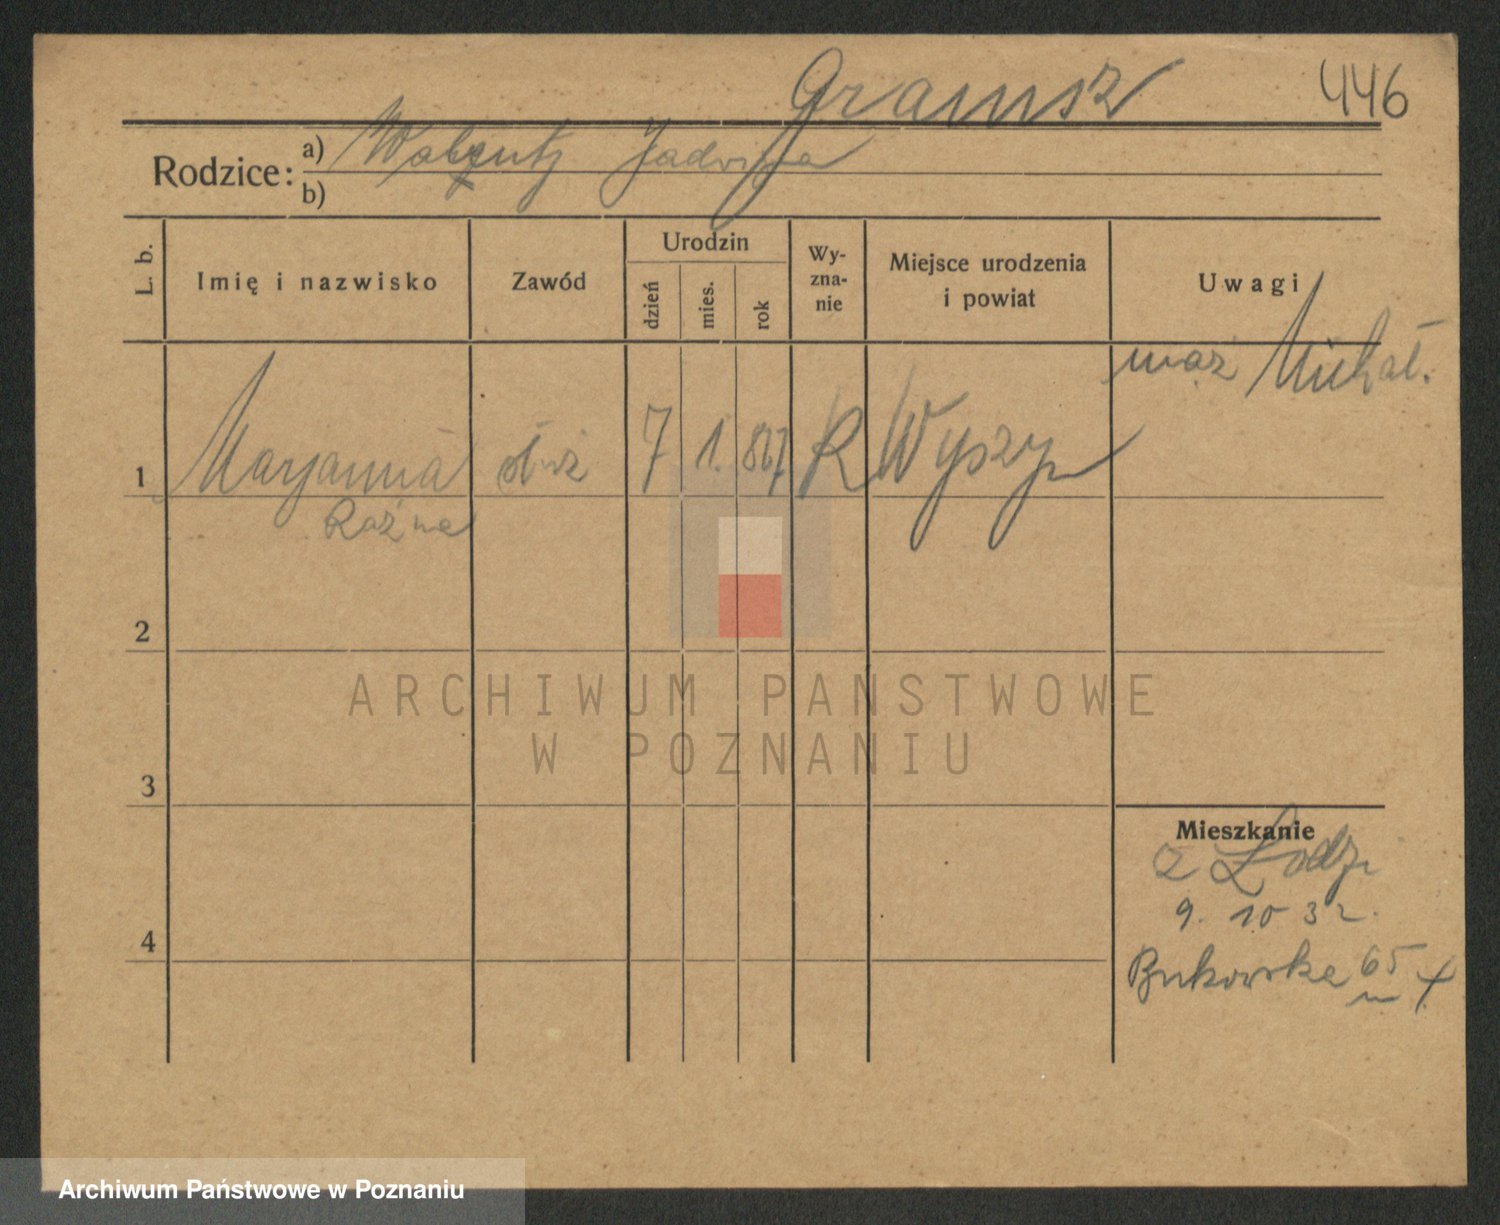 Gramsz 446
Rodzice: a) Walenty Jadwiga
b)
L. b. Imię i nazwisko Zawód Urodzin dzień mies. rok Wy-zna-nie Miejsce urodzenia i powiat Uwagi
mąż Michał.
1 Maryanna 7 1. 867 R Wyszyn
Raźna
2
3
4
Mieszkanie
z Łodzi
9. 10 32.
Bukowska 65
ARCHIWUM PAŃSTWOWE
W POZNANIU
Archiwum Państwowe w Poznaniu